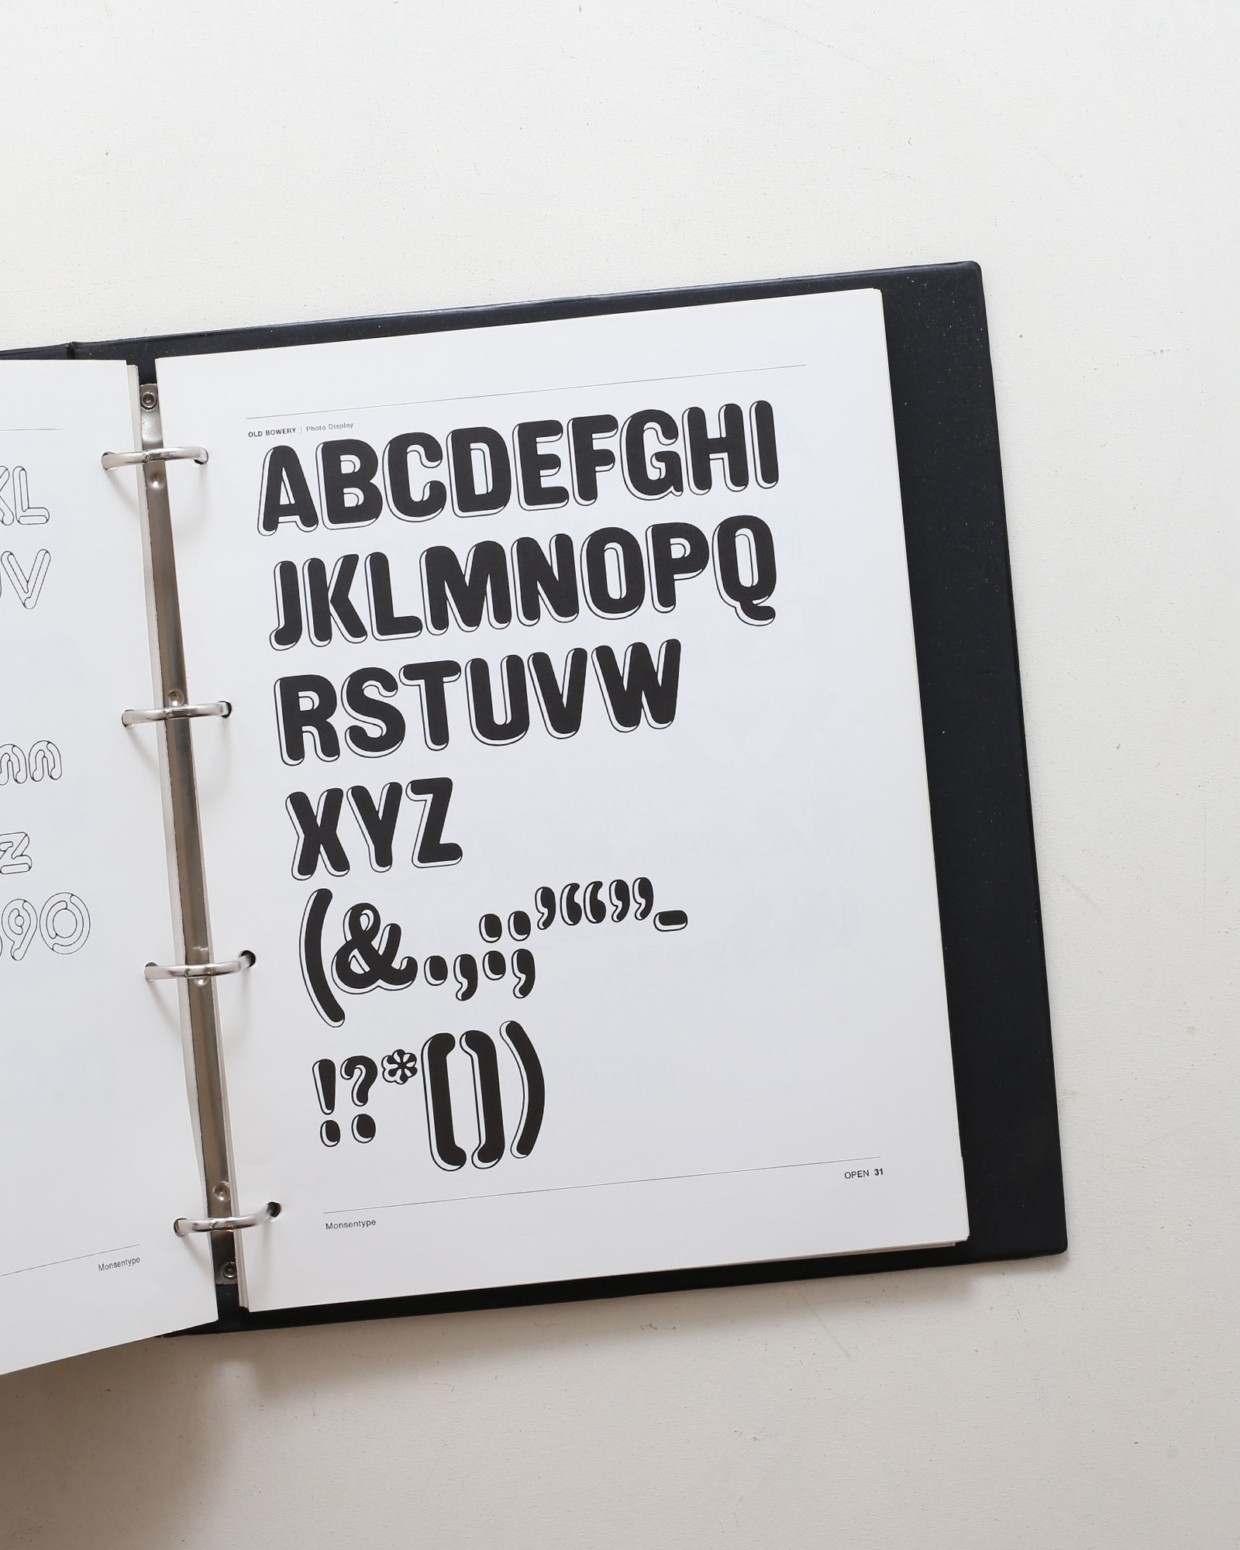 KL
UV
mn
z
890
Monsentype
OLD BOWERY | Photo Display
ABCDEFGHI
JKLMNOPQ
RSTUVW
XYZ
(&.,:;’“”-
!?*[])
Monsentype
OPEN 31